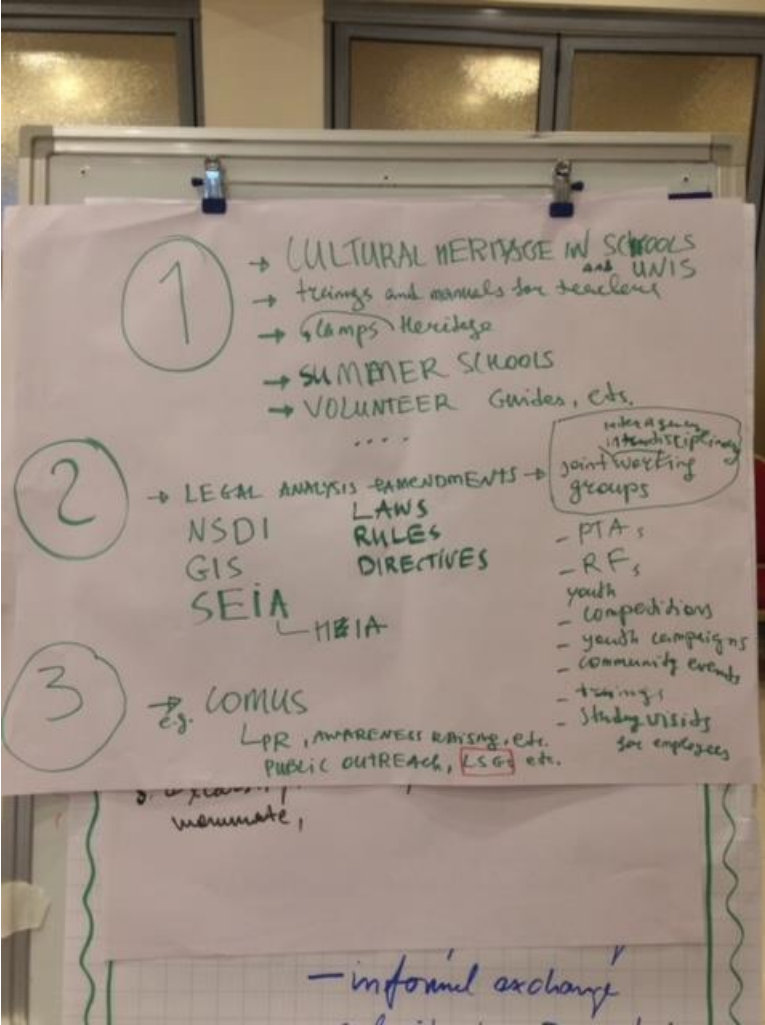 1
→ CULTURAL HERITAGE IN SCHOOLS
AND UNIS
→ trainings and manuals for teachers
→ Camps Heritage
→ SUMMER SCHOOLS
→ VOLUNTEER Guides, etc.
....
2
→ LEGAL ANALYSIS + AMENDMENTS →
LAWS
NSDI
RULES
GIS
DIRECTIVES
SEIA
HEIA
interagency
interdisciplinary
joint working
groups
- PTAs
- RFs
youth
- competitions
- youth campaigns
- community events
- trainings
- Study visits
for employees
3
→ COMUS
e.g.
PR, AWARENESS RAISING, etc.
PUBLIC OUTREACH, LSGs etc.
- informel exchange